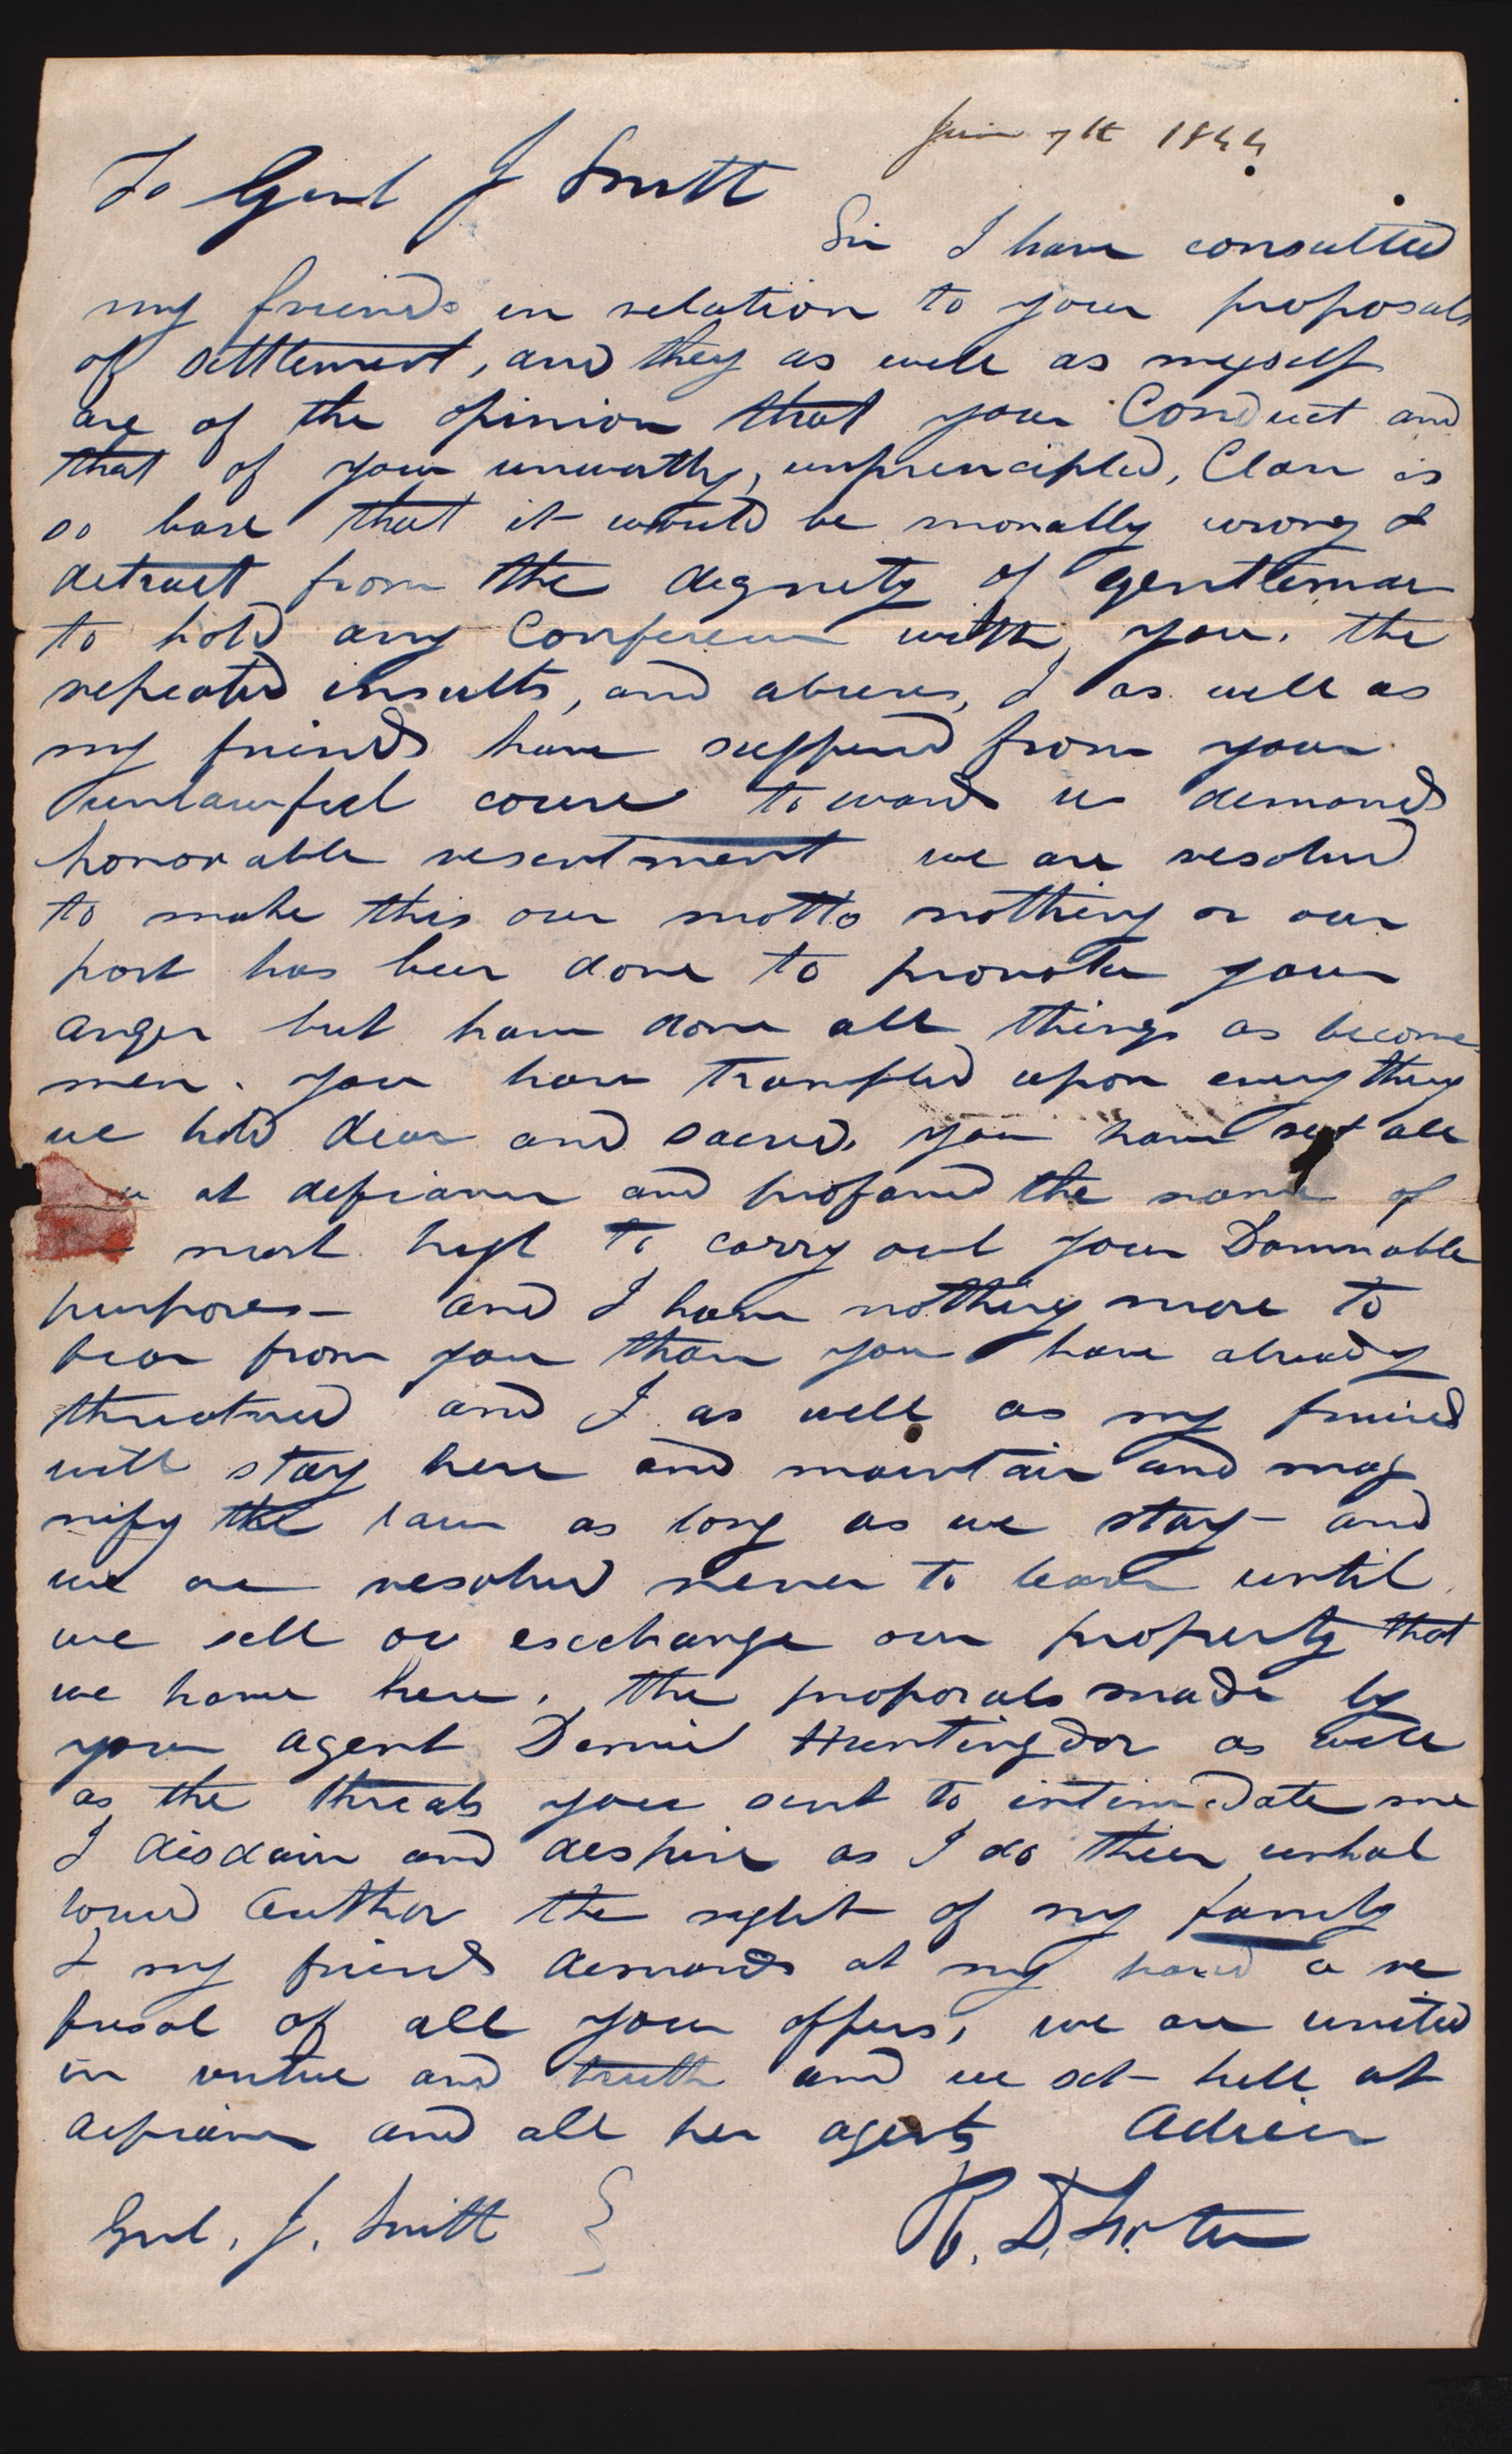 June 7th 1844.
To Genl J Smith
Sir I have consulted
my friends in relation to your proposals
of settlement, and they as well as myself
are of the opinion that your Conduct and
that of your unworthy, unprincipled, Clan is
so base that it would be morally wrong &
detract from the dignity of gentleman
to hold any Conference with you. the
repeated insults, and abuses, I as well as
my friends have suffered from your
unlawful course towards us demands
honorable resentment we are resolved
to make this our motto nothing on our
part has been done to provoke your
anger but have done all things as become
men. you have trampled upon everything
we hold dear and sacred. you have set all
at defiance and profaned the name of
most high to carry out your Damnable
purposes— and I have nothing more to
fear from you than you have already
threatned and I as well as my friends
will stay here and maintain and mag
nify the law as long as we stay— and
we are resolved never to leave until
we sell or exchange our property that
we have here. the proposals made by
your agent Demic Huntingdon as well
as the threats you sent to intimidate me
I disdain and despise as I do their unhal
lowed author the right of my family
& my friends demands at my hand a re
fusal of all your offers, we are united
in virtue and truth and we set hell at
defiance and all her agents Adieu
R. D. Foster
Genl. J. Smith }